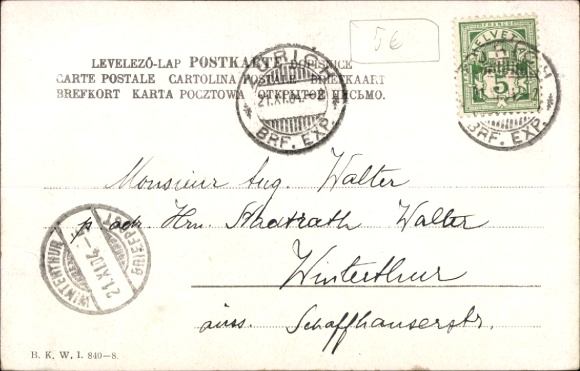 5€
LEVELEZŐ-LAP POSTKARTE DOPISNICE
CARTE POSTALE CARTOLINA POSTALE BRIEFKAART
BREFKORT KARTA POCZTOWA ОТКРЫТОЕ ПИСЬМО.
ZÜRICH
21.XI.04.-8
BRF. EXP.
HELVETIA
FRANCO
5
BRF. EXP.
Monsieur Aug. Walter
p. adr. Hrn. Stadtrath Walter
Winterthur
äuss. Schaffhauserstr.
WINTERTHUR
21.XI.04
BRIEFPOST
B. K. W. I. 840-8.